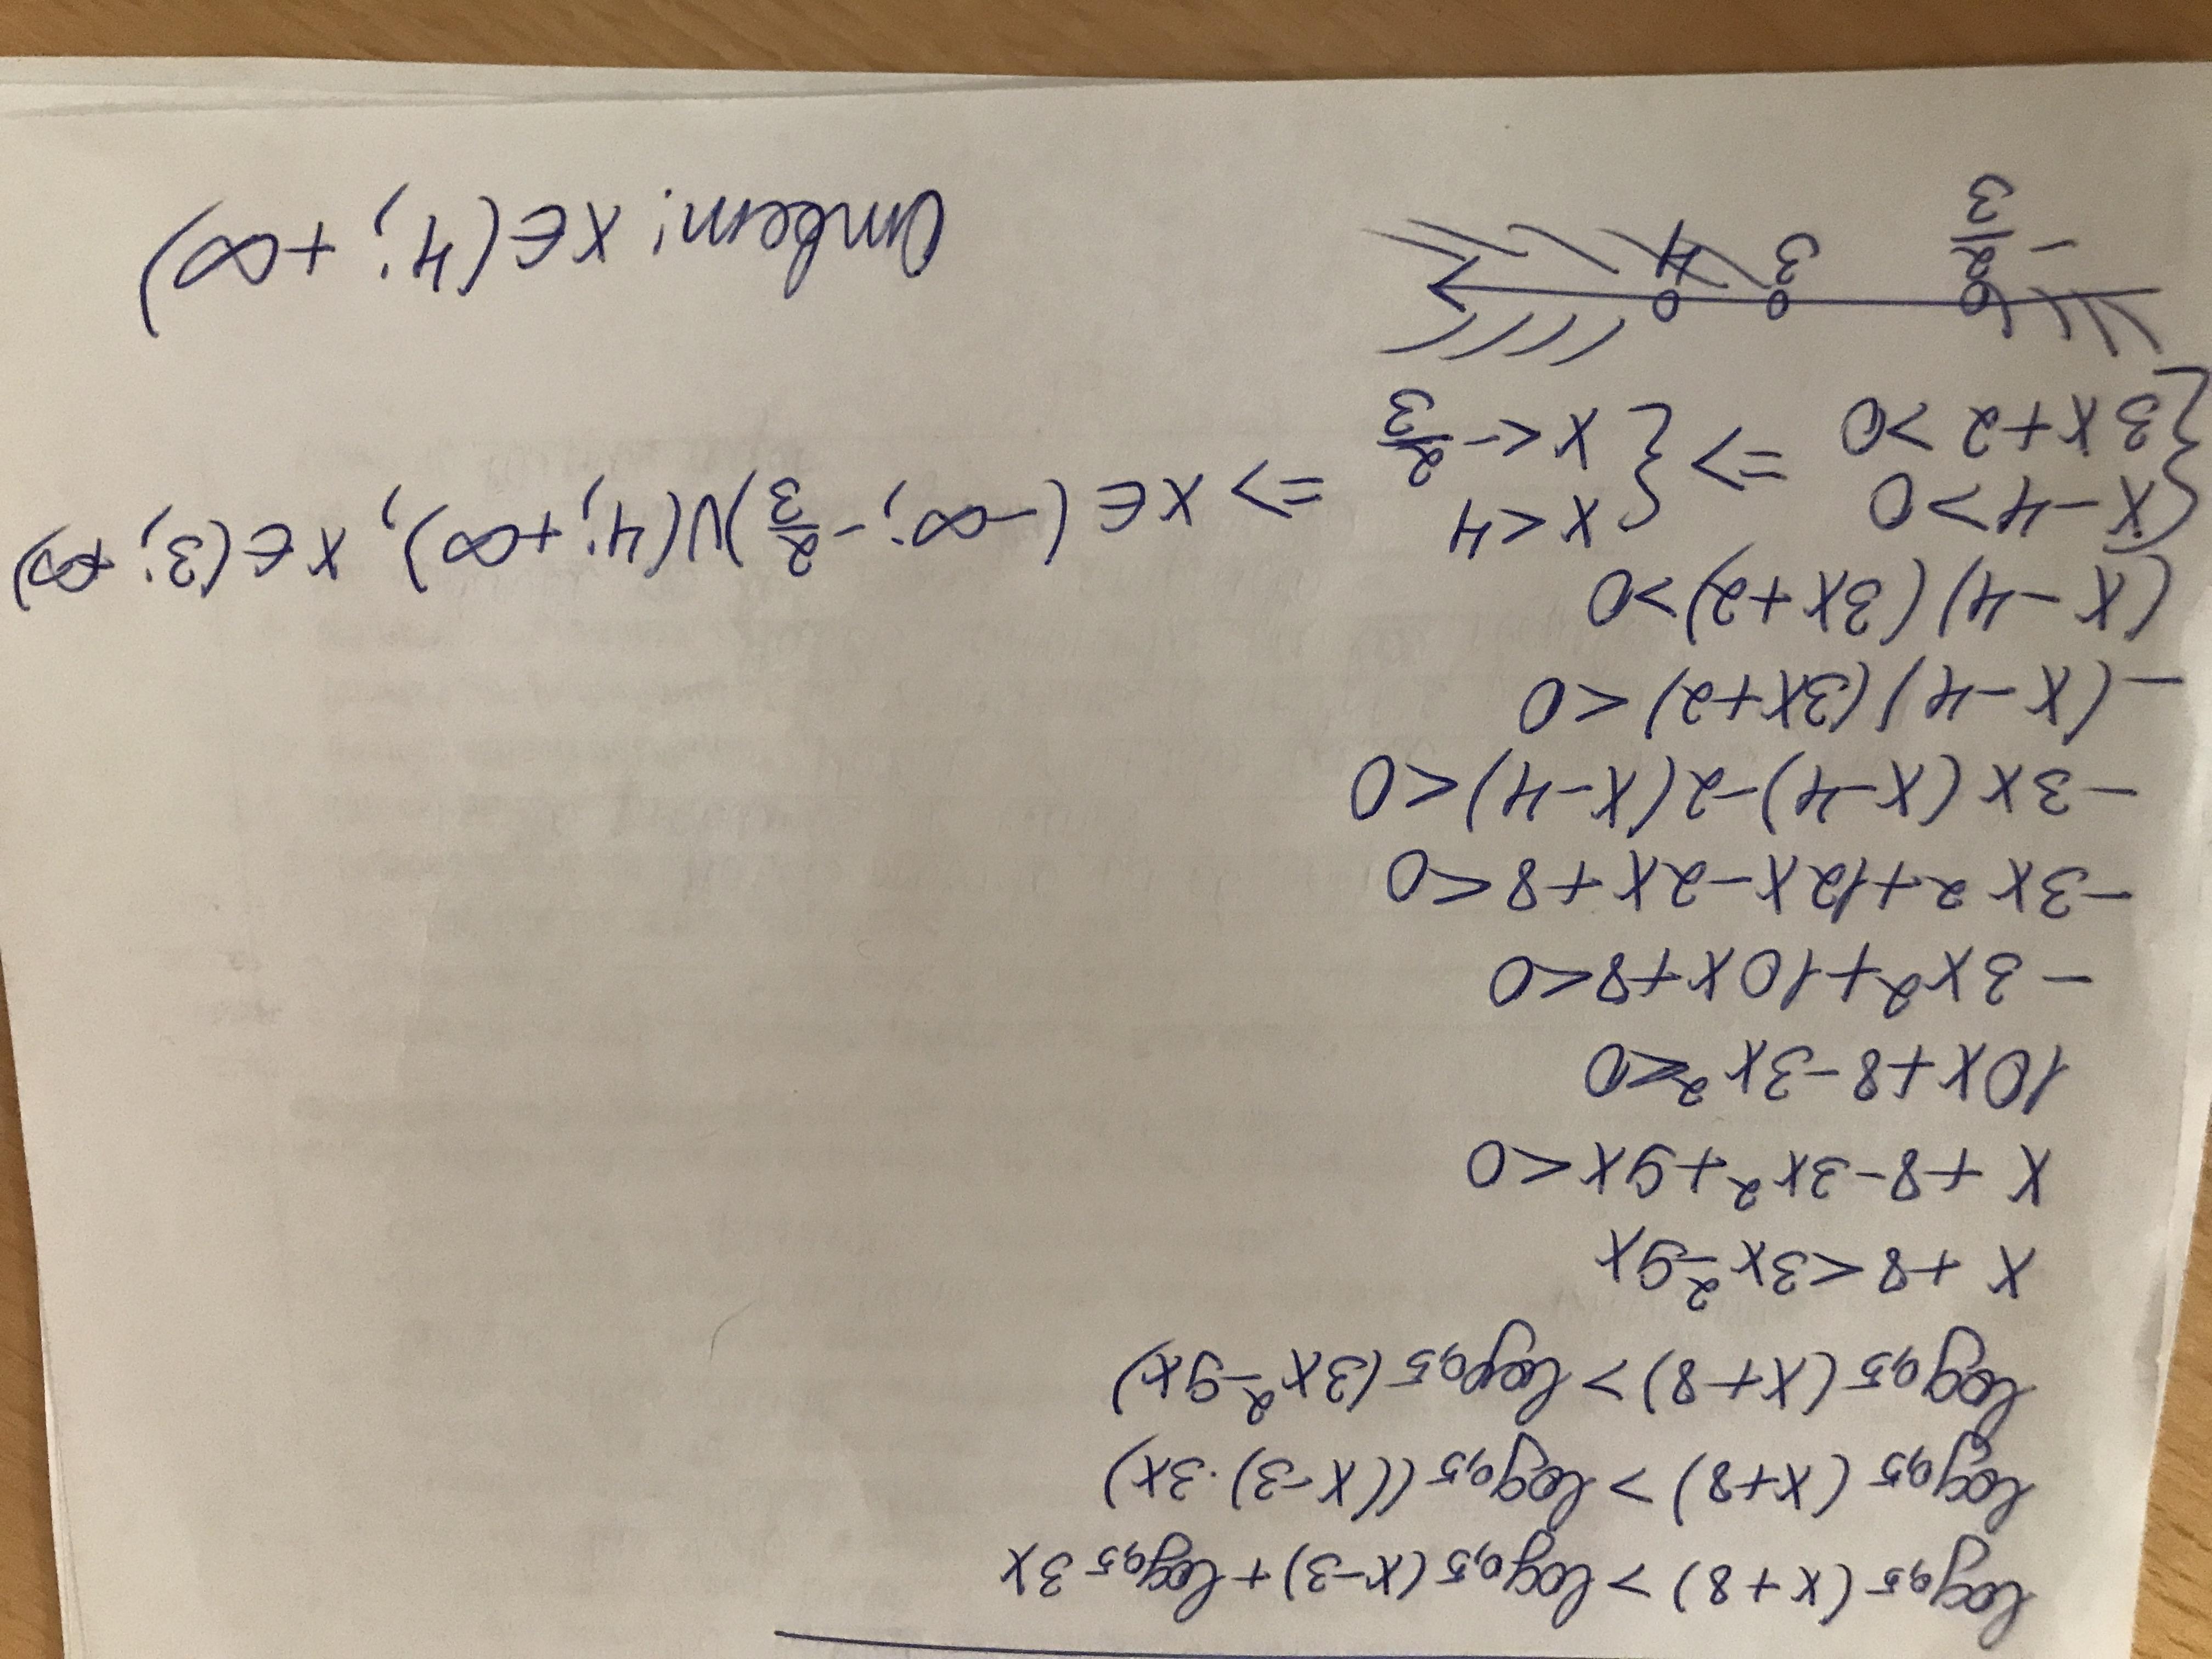 log₀,₅(x+8) > log₀,₅(x-3)+log₀,₅3x
log₀,₅(x+8) > log₀,₅((x-3)·3x)
log₀,₅(x+8) > log₀,₅(3x²-9x)
x+8<3x²-9x
x+8-3x²+9x<0
10x+8-3x²<0
-3x²+10x+8<0
-3x2+12x-2x+8<0
-3x(x-4)-2(x-4)<0
-(x-4)(3x+2)<0
(x-4)(3x+2)>0
{x-4>0 {x<4
{3x+2>0 => {x<-2/3 => x∈(-∞;-2/3)∪(4;+∞), x∈(3;+∞)
-2/3 3 4
Ответ: x∈(4;+∞)